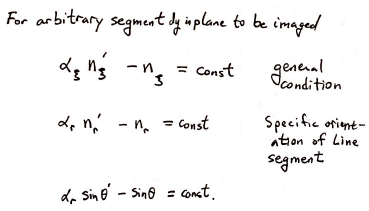 For arbitrary segment dy in plane to be imaged
αξ nξ′ - nξ = const general condition
αr nr′ - nr = const Specific orient-
ation of Line
segment
αr sinθ′ - sinθ = const.